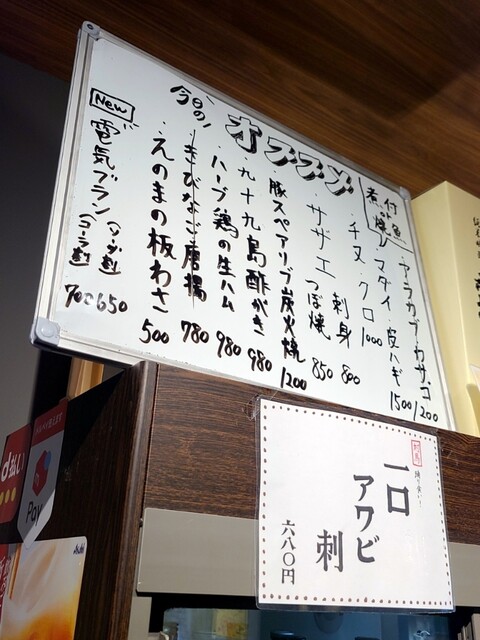 今日の!
オススメ
煮付
焼魚
・アラカブ・カサゴ 1200
シマダイ・皮ハギ 1500
・チヌ・クロ 1000
・サザエ 刺身 800
つぼ焼 850
・豚スペアリブ炭火焼 1200
・九十九島酢がき 980
・ハーブ鶏の生ハム 980
・きびなご唐揚 780
・えのまの板わさ 500
New
電気ブラン
(ソーダ割) 650
(コーラ割) 700
一口
アワビ
刺
六八〇円
d払い
Pay
Asahi